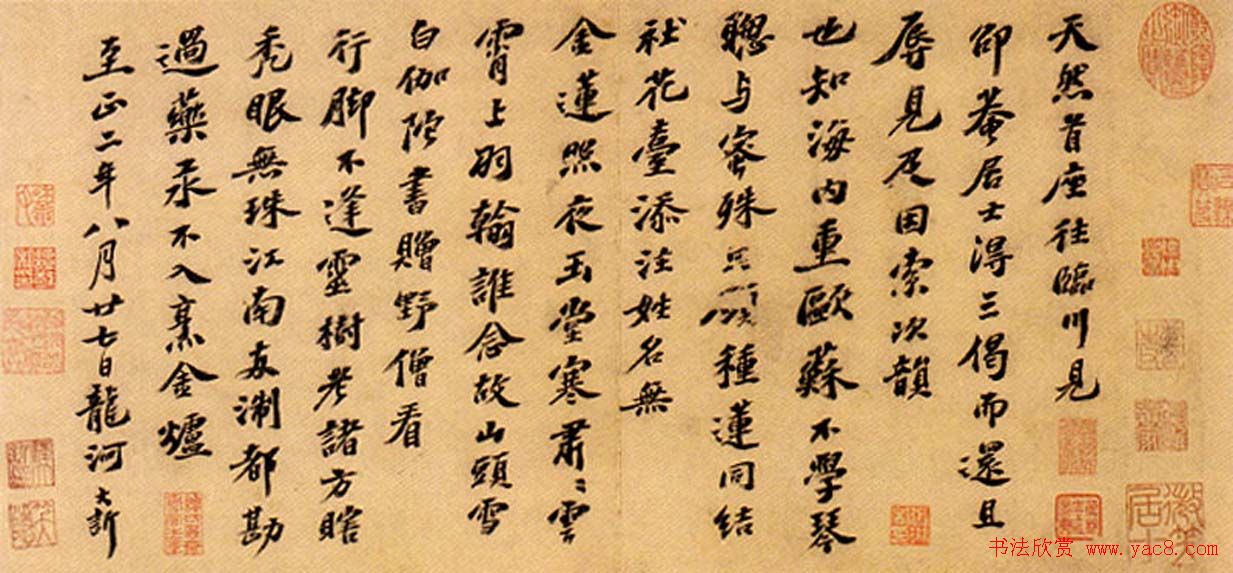 天然首座往臨川見
邵菴居士得三偈而還且
辱見及因索次韻
也知海內重歐蘇不學琴
聰与蜜殊種蓮同結
社花臺添注姓名無
金蓮照夜玉堂寒肅〻雲
霄上羽翰誰念故山頭雪
白伽陁書贈野僧看
行腳不逢靈樹老諸方瞎
禿眼無珠江南淛都勘
過藥汞不入烹金爐
至正二年八月廿七日龍河大訢
书法欣赏 www.yac8.com